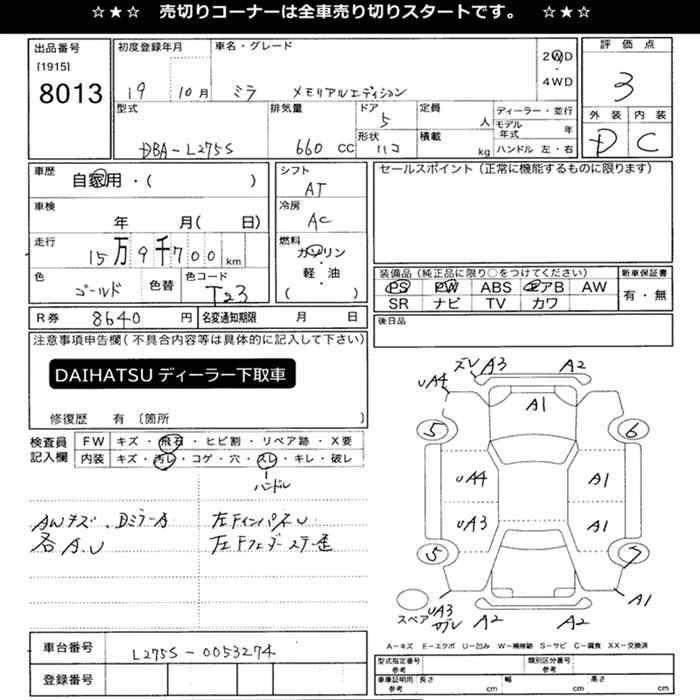 ☆★☆ 売切りコーナーは全車売り切りスタートです。 ☆★☆
出品番号
[1915]
8013
初度登録年月
19 10月
車名・グレード
ミラ メモリアルエディション
2WD
・
4WD
評価点
3
外装 内装
D C
型式
DBA-L275S
排気量
660 CC
ドア
5
形状
ハコ
定員
人
積載
kg
ディーラー・並行
モデル年式 年
ハンドル 左・右
車歴
自家用・( )
車検
年 月( 日)
走行
15万9千700km
色
ゴールド
色替
色コード
T23
シフト
AT
冷房
AC
燃料
ガソリン
・
軽・油
( )
セールスポイント(正常に機能するものに限ります)
装備品(純正品に限り○をつけてください)
PS PW ABS エアB AW
SR ナビ TV カワ
新車保証書
有・無
後日品
R券 8640 円
名変通知期限 月 日
注意事項申告欄(不具合内容等は具体的に記入して下さい)
DAIHATSUディーラー下取車
修復歴 有〔箇所 〕
検査員
記入欄
FW キズ・飛石・ヒビ割・リペア跡・X要
内装 キズ・汚レ・コゲ・穴・スレ・キレ・破レ
ハンドル
AWキズ、DミラーA
各A.U
左インパネU
車台番号
L275S-0053274
登録番号
ズレ A3 A2
UA4
A1
5 6
UA4 A1
UA3 A1
5 7
スペア
UA3
A2 A2
A1
A-キズ E-エクボ U-凹み W-補修跡 S-サビ C-腐食 XX-交換済
型式指定番号
参考
類別区分番号
参考
車庫証明用
参考
長さ cm
幅 cm
高さ cm